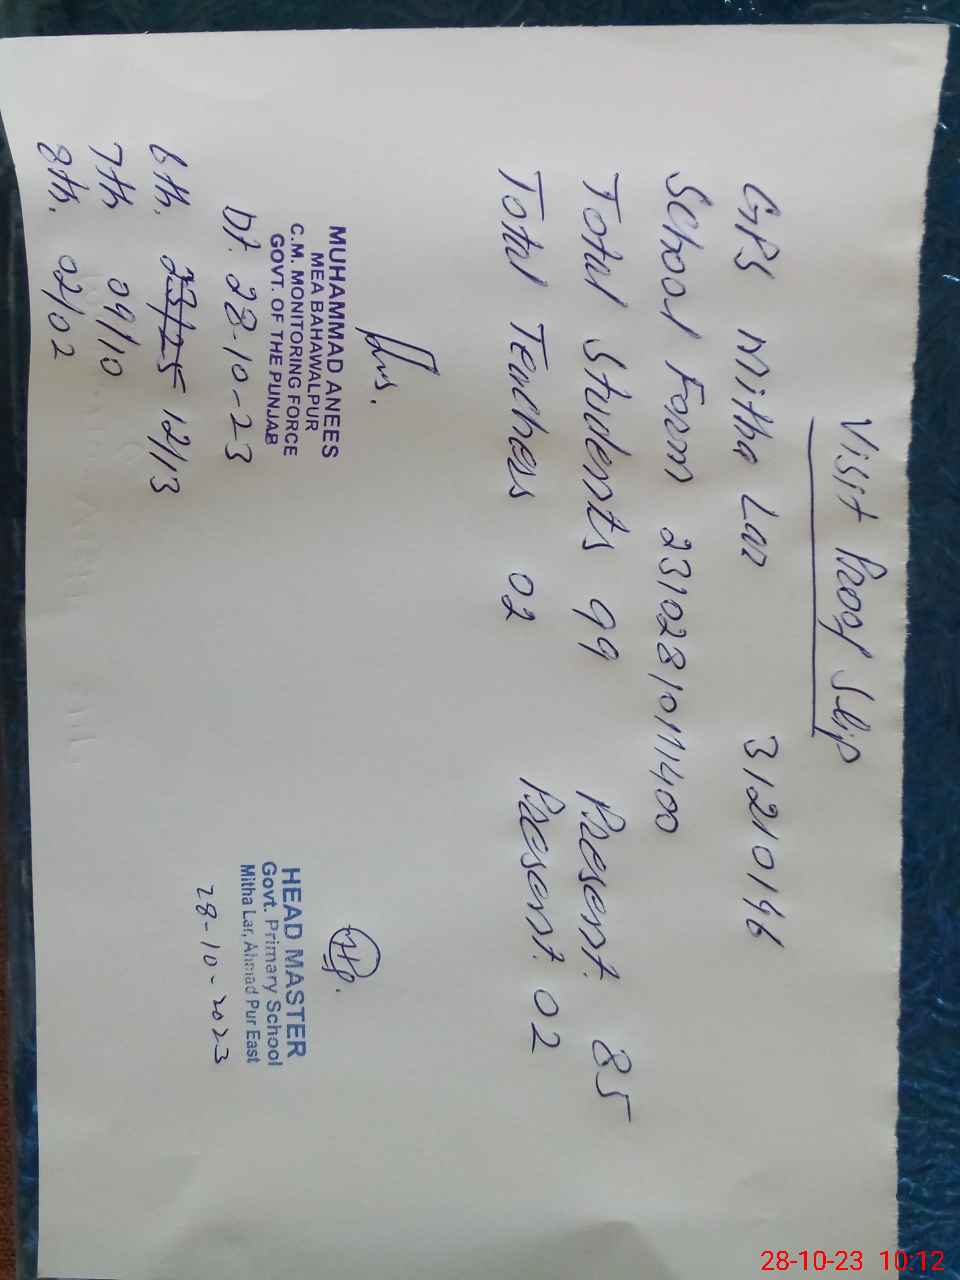 Visit Proof Slip
GPS Mitha Lar 31210146
School Form 23102810111400
Total Students 99 Present. 85
Total Teachers 02 Present. 02
MUHAMMAD ANEES
MEA BAHAWALPUR
C.M. MONITORING FORCE
GOVT. OF THE PUNJAB
Dt. 28-10-23
HEAD MASTER
Govt. Primary School
Mitha Lar, Ahmad Pur East
28-10-2023
6th. 23/25 12/13
7th 09/10
8th. 02/02
28-10-23 10:12